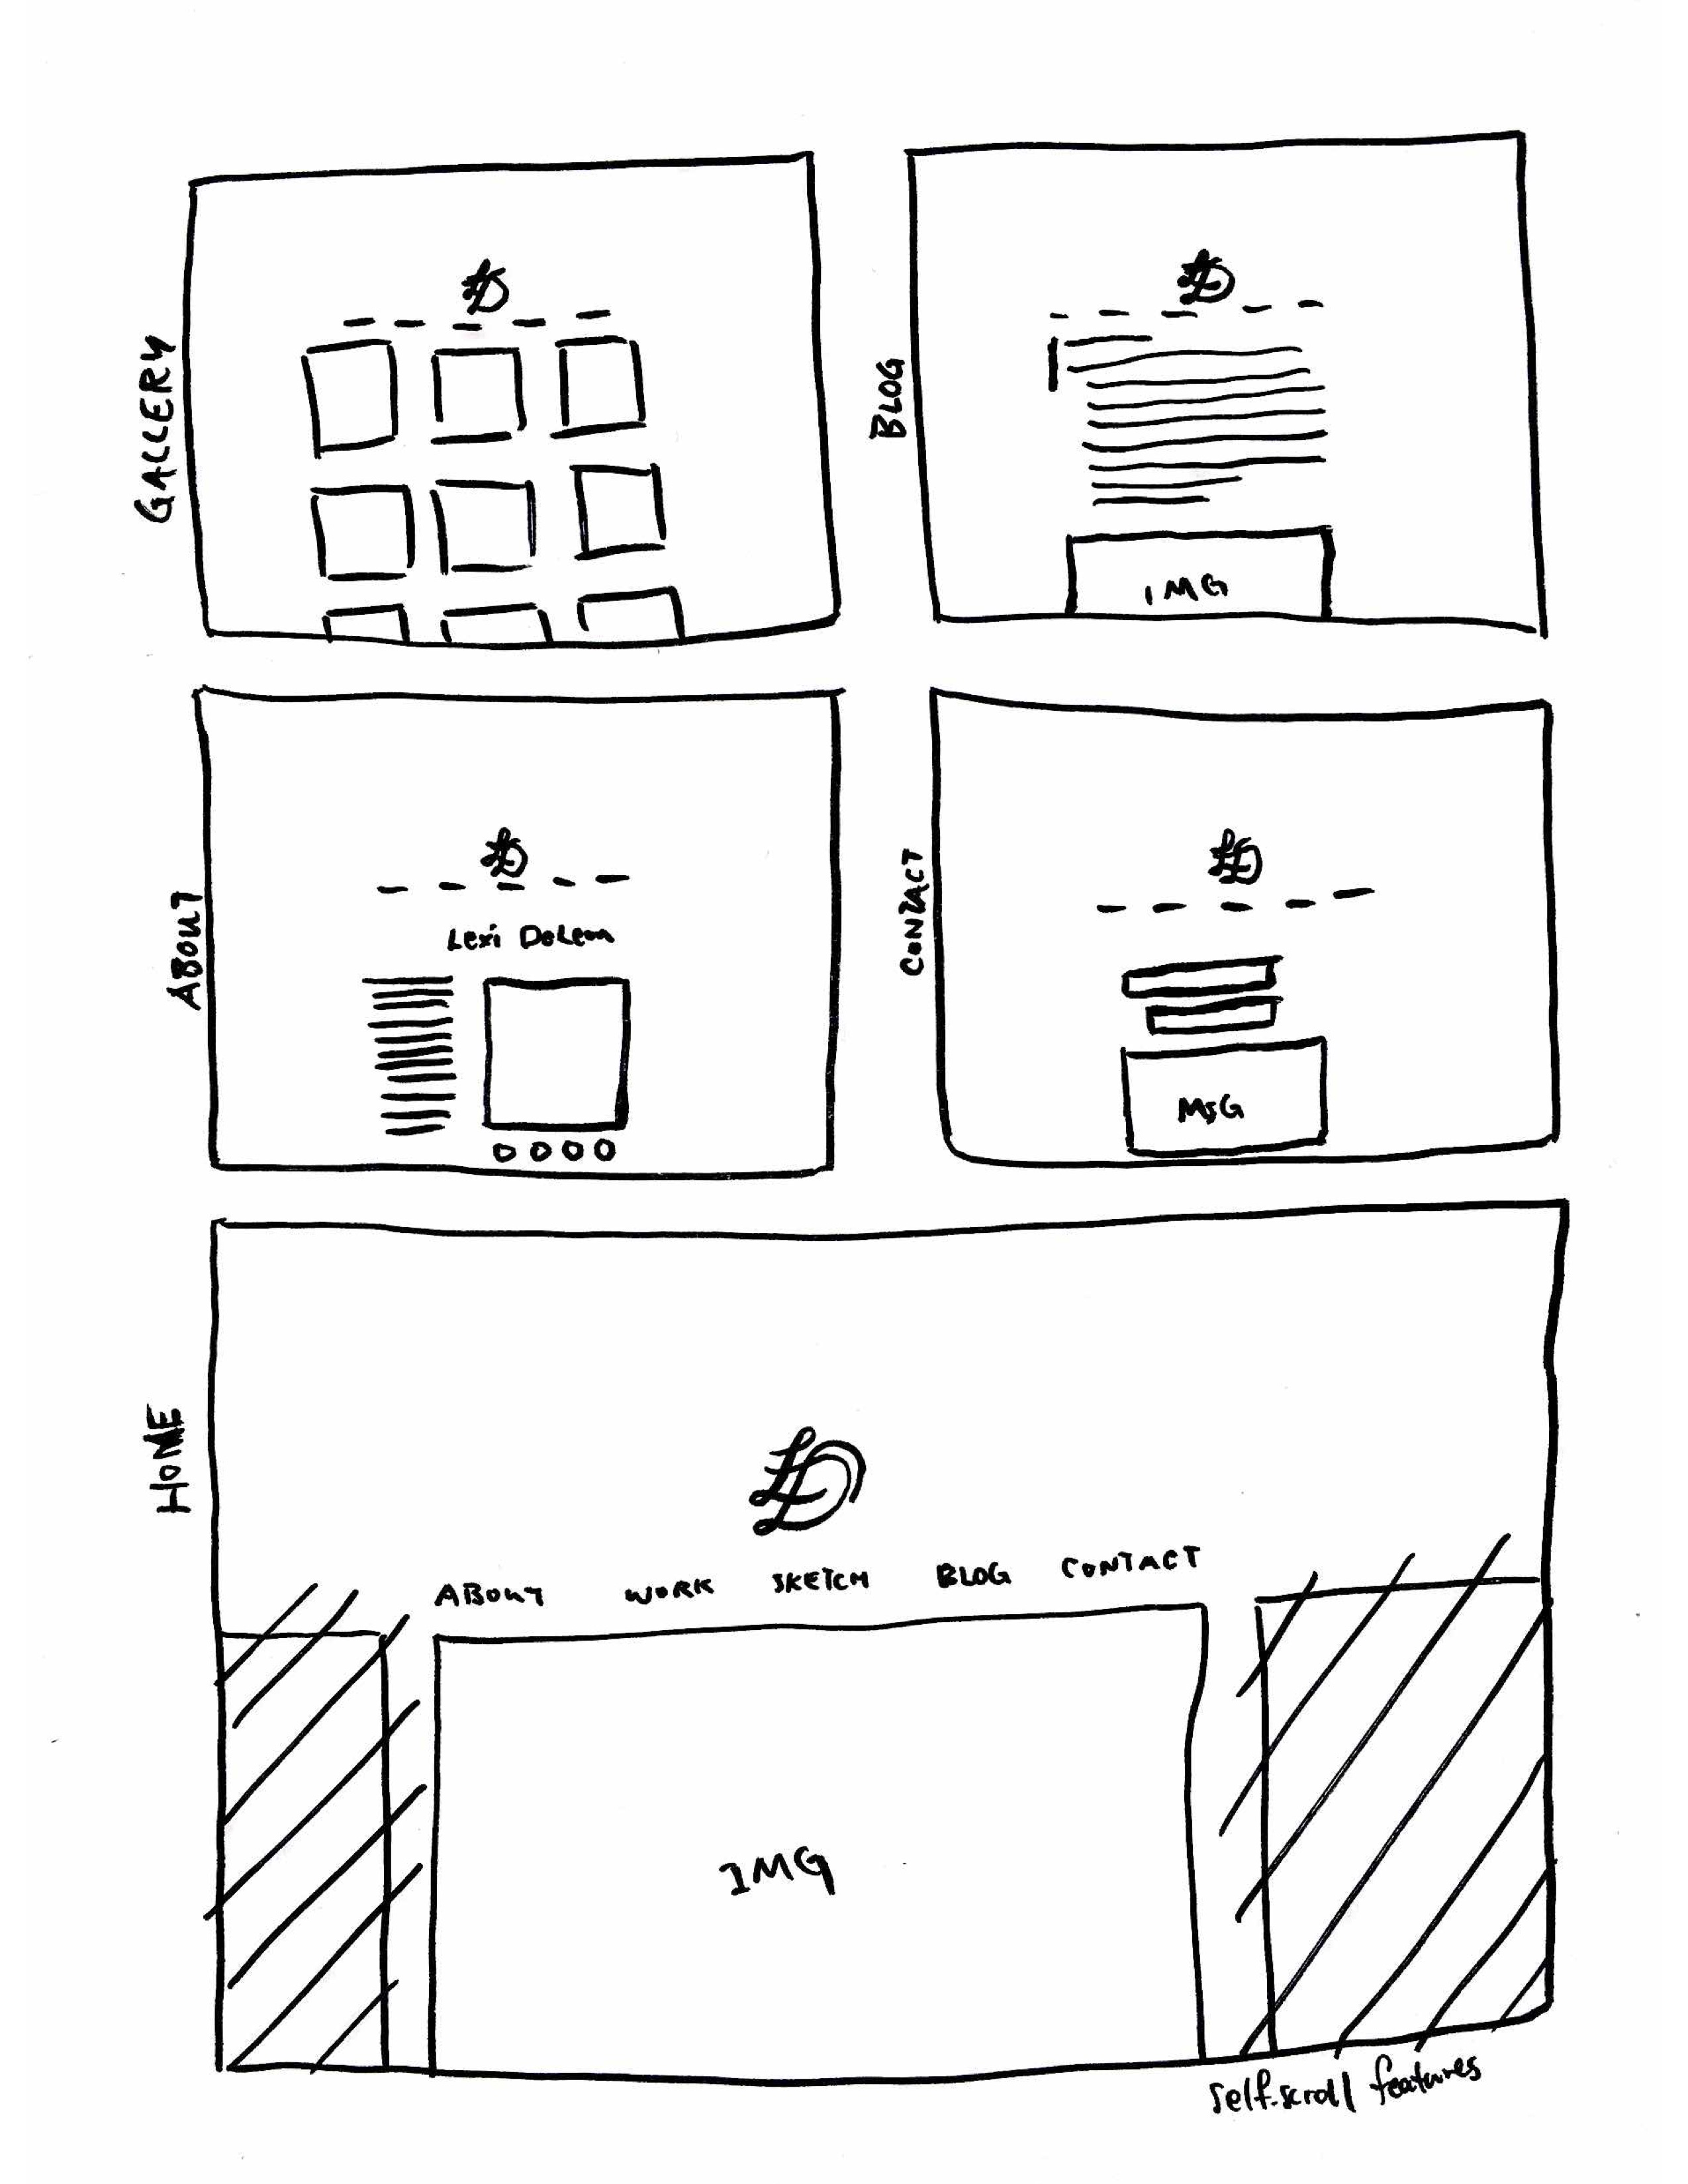 GALLERY
LD
BLOG
LD
IMG
ABOUT
LD
Lexi DeLeon
CONTACT
LD
MSG
HOME
LD
ABOUT WORK SKETCH BLOG CONTACT
IMG
self-scroll features